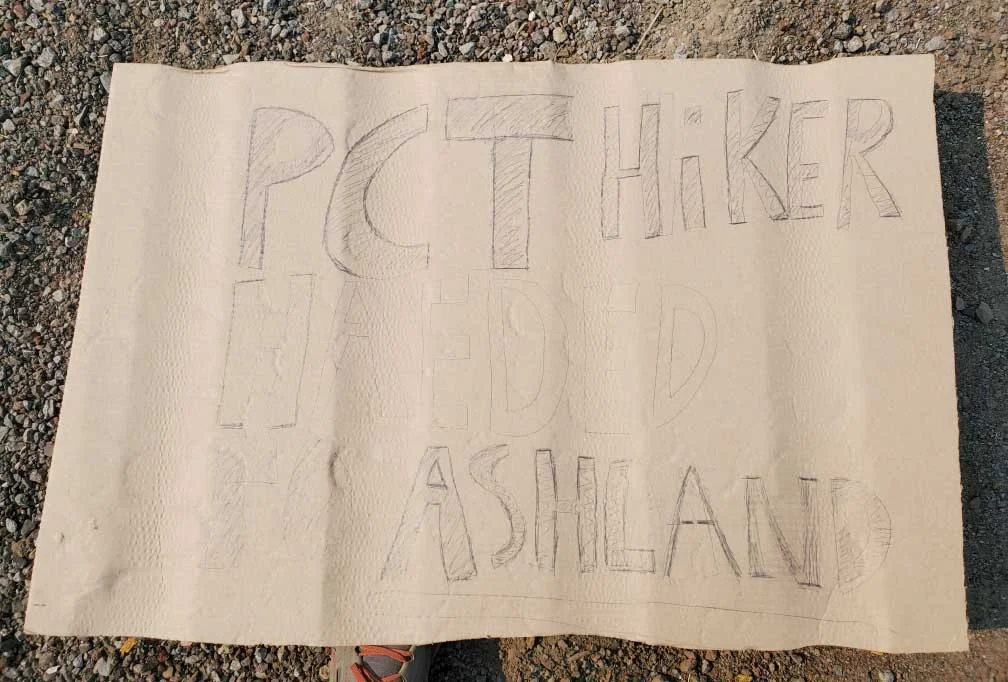 PCT HiKER
HEADED
TO ASHLAND